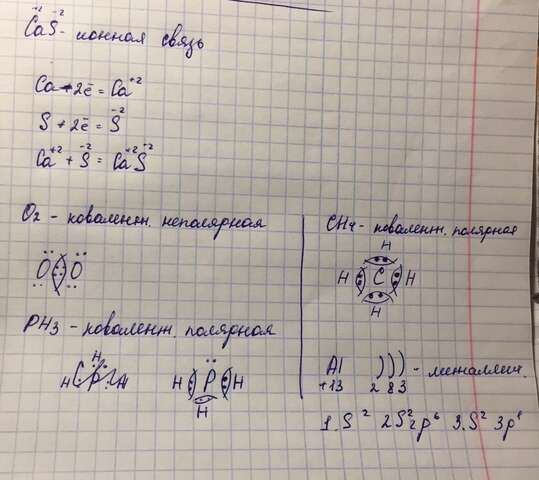 Ca⁺²S⁻² - ионная связь
Ca - 2ē = Ca⁺²
S + 2ē = S⁻²
Ca⁺² + S⁻² = Ca⁺²S⁻²
O₂ - ковалентн. неполярная
O O
PH₃ - ковалент. полярная
H
H P H
H P H
H
CH₄ - ковалент. полярная
H
H C H
H
Al ))) - металлич.
+13 2 8 3
1S² 2S² 2p⁶ 3S² 3p¹